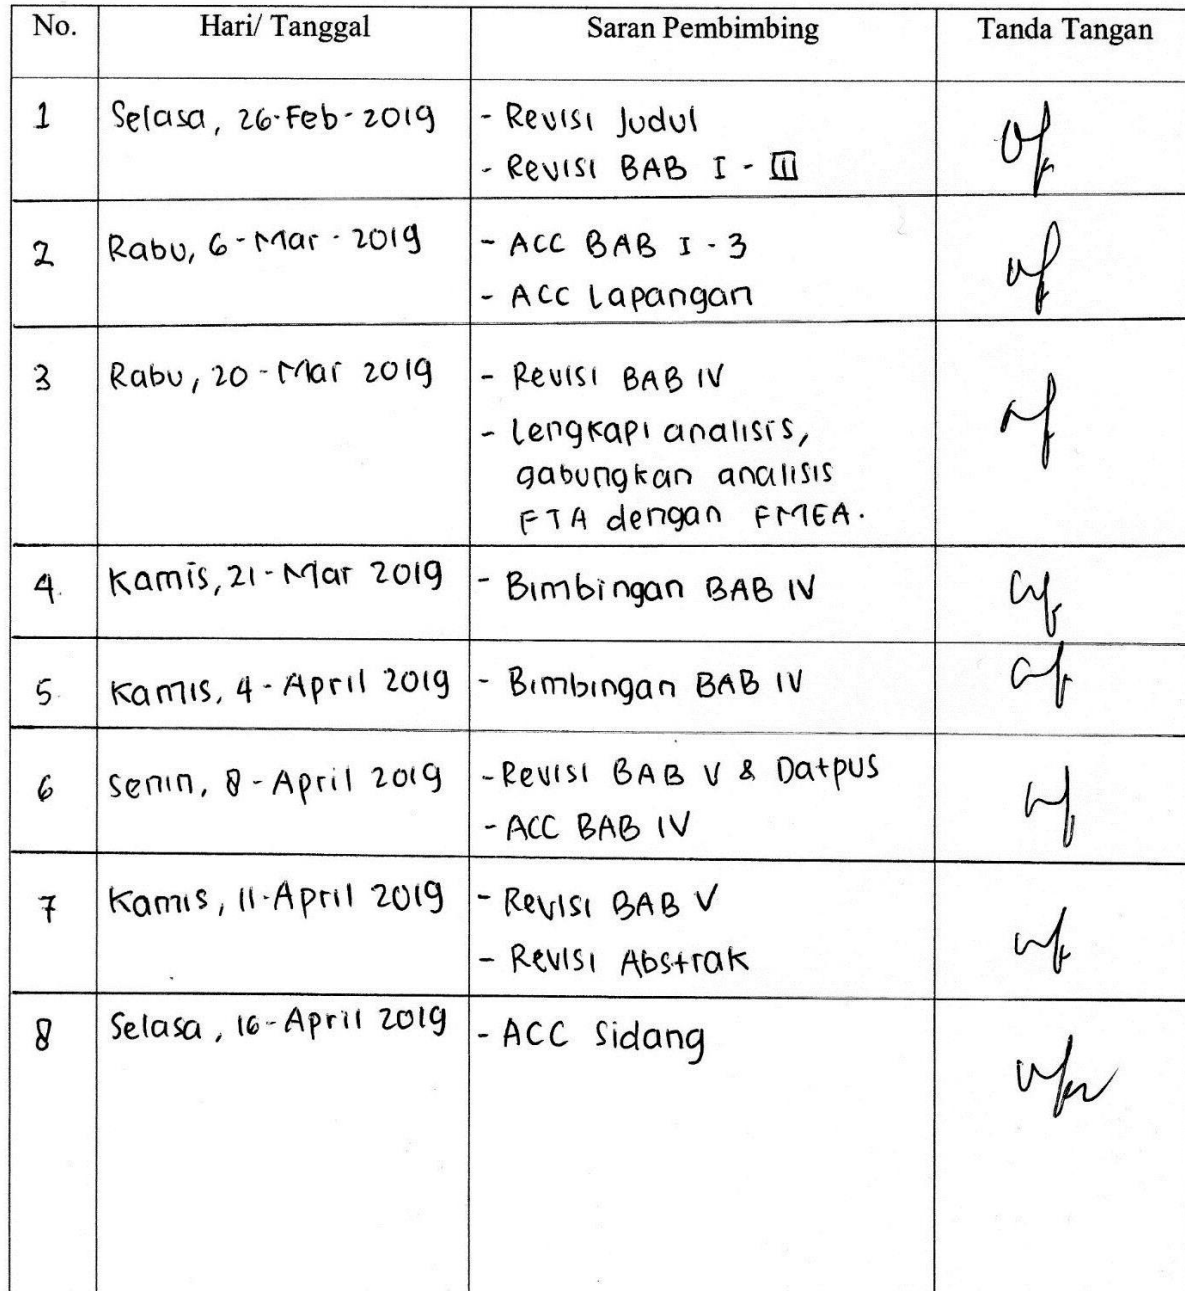 No. Hari/ Tanggal Saran Pembimbing Tanda Tangan
1 Selasa, 26-Feb-2019 - Revisi Judul
- Revisi BAB I - III
2 Rabu, 6-Mar-2019 - ACC BAB I - 3
- ACC Lapangan
3 Rabu, 20-Mar 2019 - Revisi BAB IV
- Lengkapi analisis,
gabungkan analisis
FTA dengan FMEA.
4. Kamis, 21-Mar 2019 - Bimbingan BAB IV
5. Kamis, 4-April 2019 - Bimbingan BAB IV
6 Senin, 8-April 2019 - Revisi BAB V & Datpus
- ACC BAB IV
7 Kamis, 11-April 2019 - Revisi BAB V
- Revisi Abstrak
8 Selasa, 16-April 2019 - ACC Sidang